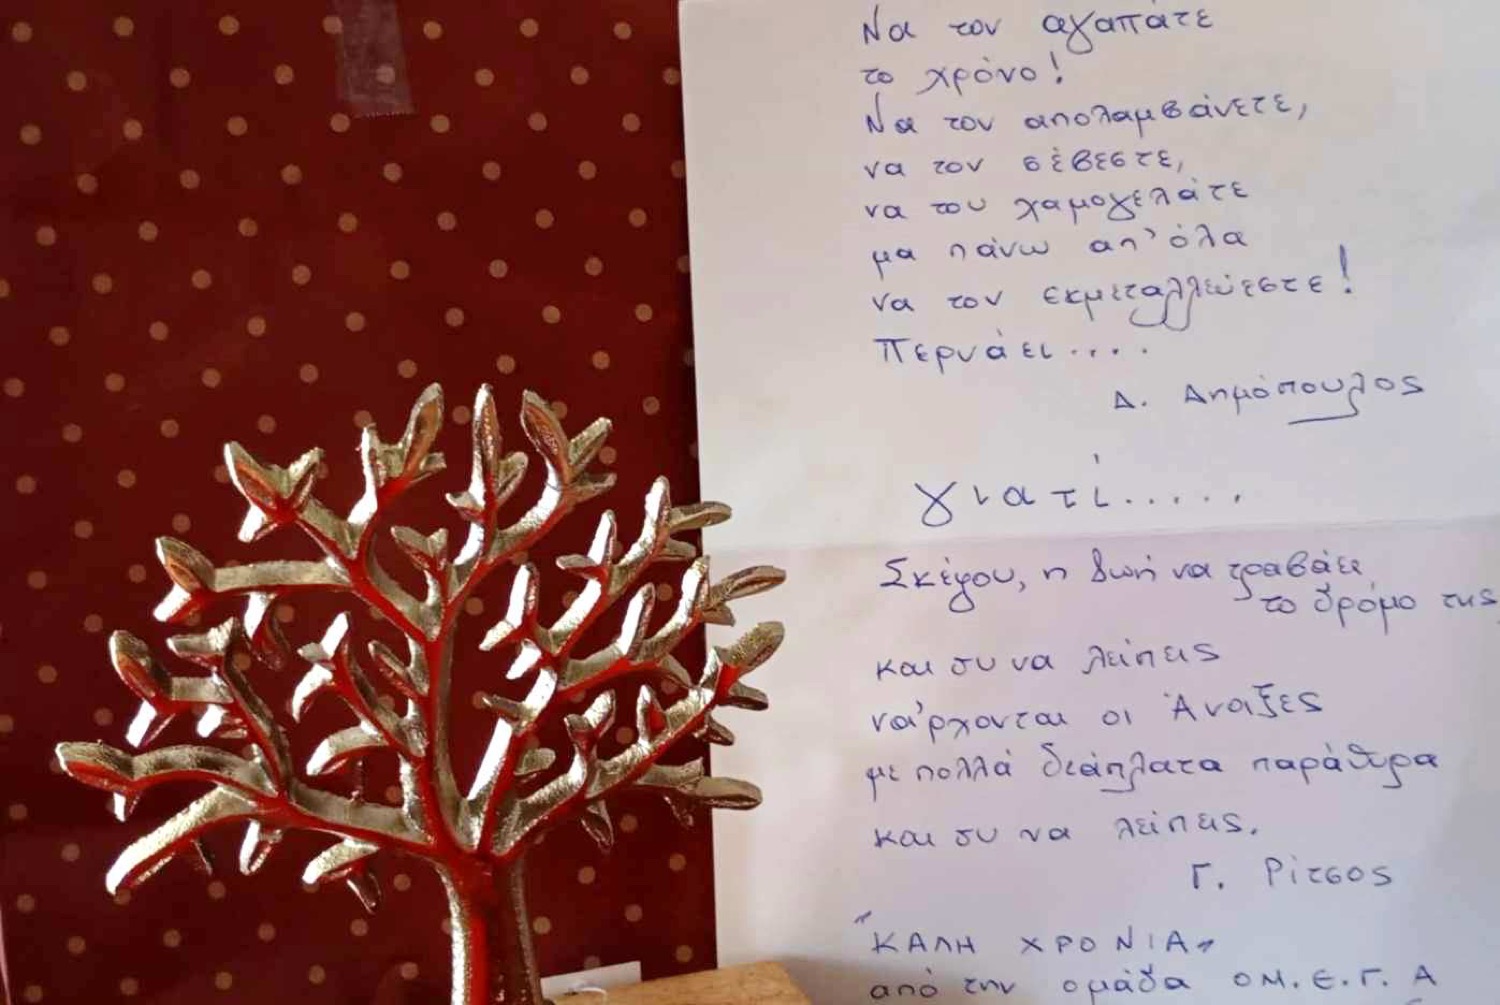 Να τον αγαπάτε
το χρόνο!
Να τον απολαμβάνετε,
να τον σέβεστε,
να του χαμογελάτε
μα πάνω απ' όλα
να τον εκμεταλλεύεστε!
Περνάει....
Δ. Δημόπουλος
γιατί.....
Σκέψου, η ζωή να τραβάει
το δρόμο της,
και συ να λείπεις
να'ρχονται οι Άνοιξες
με πολλά διάπλατα παράθυρα
και συ να λείπεις.
Γ. Ρίτσος
"ΚΑΛΗ ΧΡΟΝΙΑ"
από την ομάδα ΟΜ.Ε.Γ.Α